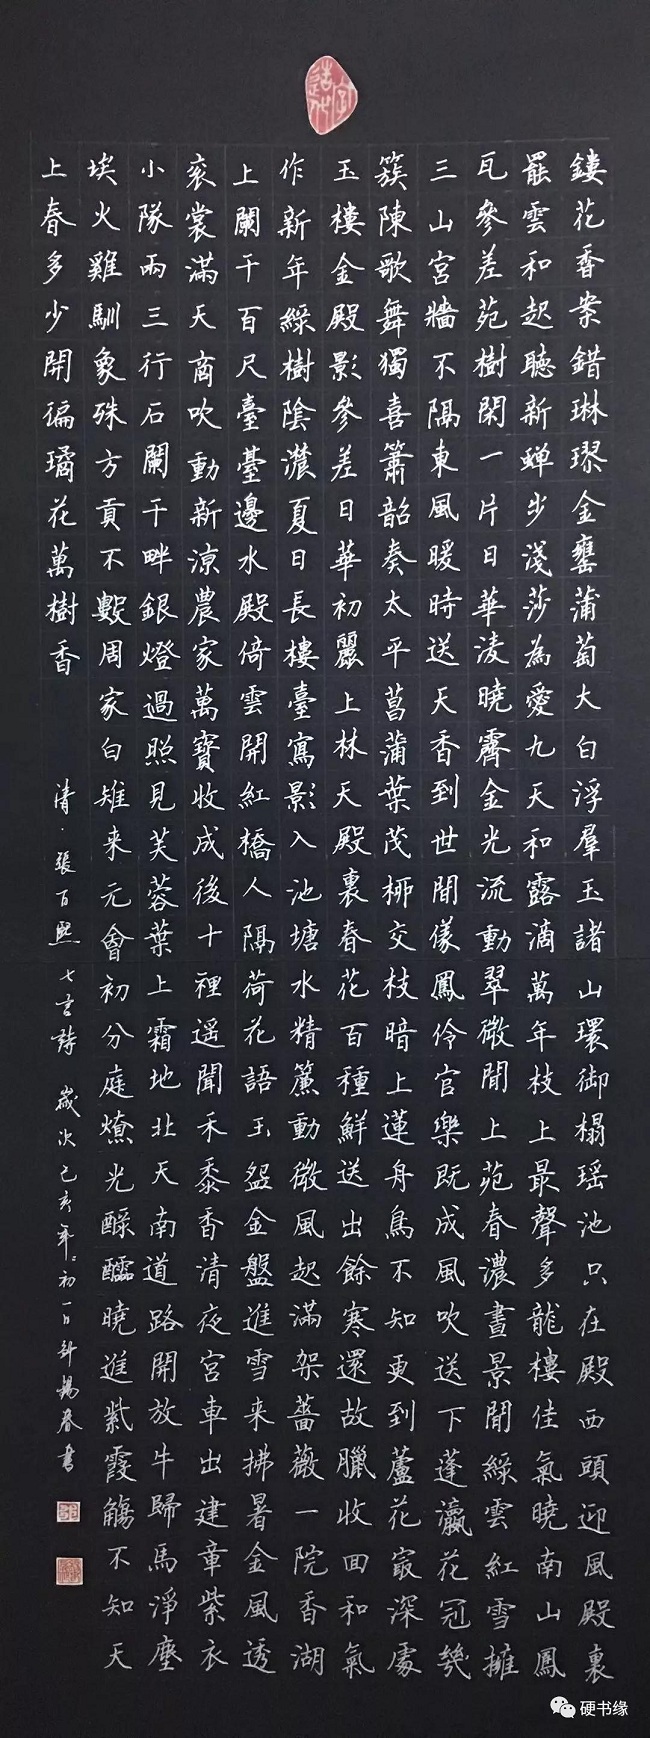 鏤花香案錯琳璆金罋蒲萄大白浮羣玉諸山環御榻瑶池只在殿西頭迎風殿裏
罷雲和起聽新蟬步淺莎為愛九天和露滴萬年枝上最聲多龍樓佳氣曉南山鳳
瓦參差苑樹閑一片日華淩曉霽金光流動翠微間上苑春濃晝景閒綠雲紅雪擁
三山宮牆不隔東風暖時送天香到世間儀鳳伶官樂既成風吹送下蓬瀛花冠幾
簇陳歌舞獨喜簫韶奏太平菖蒲葉茂柳交枝暗上蓮舟鳥不知更到蘆花最深處
玉樓金殿影參差日華初麗上林天殿裏春花百種鮮送出餘寒還故臘收回和氣
作新年綠樹陰濃夏日長樓臺寫影入池塘水精簾動微風起滿架薔薇一院香湖
上闌干百尺臺臺邊水殿倚雲開紅橋人隔荷花語玉盌金盤進雪来拂暑金風透
袞裳滿天商吹動新涼農家萬寶收成後十裡遥聞禾黍香清夜宮車出建章紫衣
小隊兩三行石闌干畔銀燈過照見芙蓉葉上霜地北天南道路開放牛歸馬淨塵
埃火雞馴象殊方貢不數周家白雉来元會初分庭燎光醁醽曉進紫霞觴不知天
上春多少開徧璚花萬樹香
清·張百熙七言詩 歲次己亥年初一日 揚春書
硬书缘